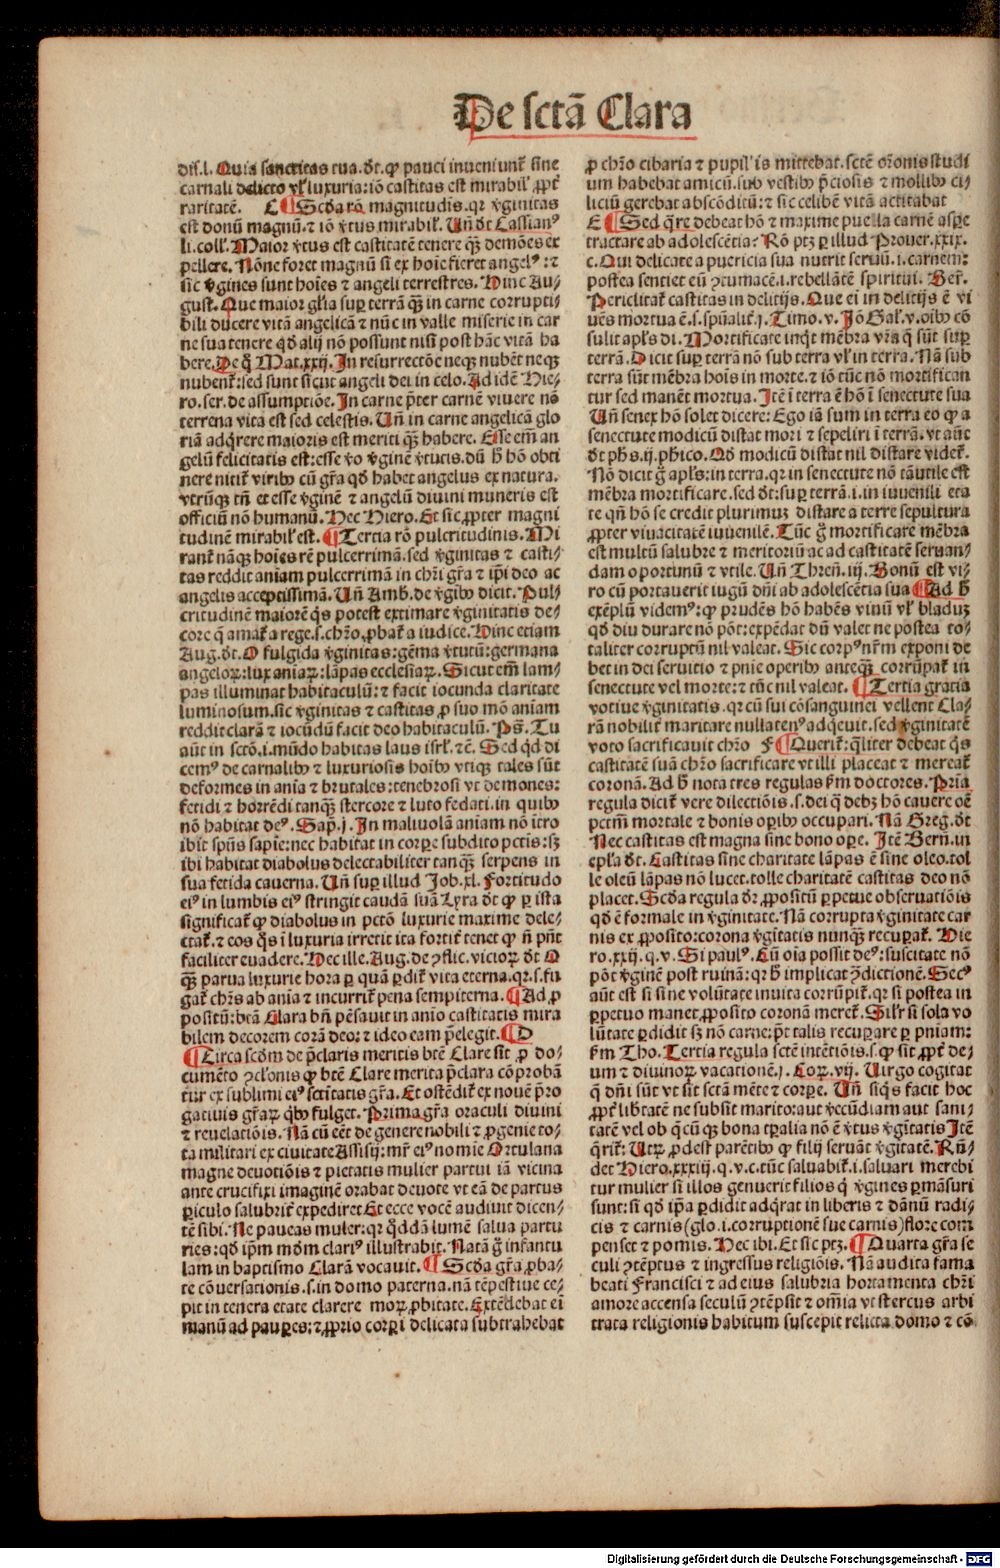 De sctā Clara
dist. l. Quia sanctitas tua. dt. ꝙ pauci inueniunt̄ sine
carnali delicto vl̓ luxuria: iō castitas est mirabil̓ ꝓpt̄
raritatē. C ¶ Scd̓a rō magnitudis. qr v̓ginitas
est donū magnū. ⁊ iō v̓tus mirabil̓. Un̄ dt Cassianꝰ
li. coll̓. Maior v̓tus est castitatē tenere qꝫ demōes ex
pellere. Nōne foret magnū si ex hoīe fieret angelꝰ: ⁊
sic v̓gines sunt hoīes ⁊ angeli terrestres. Hinc Au⸗
gust. Que maior gl̓ia suꝑ terrā qꝫ in carne corrupti⸗
bili ducere vitā angelicā ⁊ nūc in valle miserie in car
ne sua tenere qd̓ alij nō possunt nisi post hāc vitā ha
bere. De q̄ Mat. xxij. In resurrectōe neqꝫ nubēt neqꝫ
nubent̄: sed sunt sicut angeli dei in celo. Ad idē Hie⸗
ro. ser. de assumptiōe. In carne p̄ter carnē viuere nō
terrena vita est sed celestis. Un̄ in carne angelicā glo
riā adq̄rere maioris est meriti qꝫ habere. Esse em̄ an
gelū felicitatis est: esse v̓o v̓ginē v̓tutis. dū h̄ hō obti
nere nitit̄ viribꝰ cū gr̄a qd̓ habet angelus ex natura.
vtrūqꝫ tn̄ et esse v̓ginē ⁊ angelū diuini muneris est
officiū nō humanū. Hec Hiero. Et sic ꝓpter magni
tudinē mirabil̓ est. ¶ Tertia rō pulcritudinis. Mi
rant̄ nāqꝫ hoīes rē pulcerrimā. sed v̓ginitas ⁊ casti⸗
tas reddit aniam pulcerrimā in chr̄i gr̄a ⁊ ip̄i deo ac
angelis acceptissimā. Un̄ Amb. de v̓gibꝰ dicit. Pul⸗
critudinē maiorē q̄s potest extimare v̓ginitatis de⸗
core q̄ amat̄ a rege. s. chr̄o, ꝓbat̄ a iudice. Hinc etiam
Aug. dt. O fulgida v̓ginitas: gēma v̓tutū: germana
angeloꝝ: lux aniaꝝ: lāpas ecclesiaꝝ. Sicut em̄ lam⸗
pas illuminat habitaculū: ⁊ facit iocunda claritate
luminosum. sic v̓ginitas ⁊ castitas ꝑ suo mō aniam
reddit clarā ⁊ iocūdū facit deo habitaculū. Ps̄. Tu
aūt in sctō. i. mūdo habitas laus isrl̓. ⁊ē. Sed qd̓ di
cemꝰ de carnalibꝰ ⁊ luxuriosis hoībꝰ vtiqꝫ tales sūt
deformes in ania ⁊ brutales: tenebrosi vt demones:
fetidi ⁊ horrēdi tanqꝫ stercore ⁊ luto fedati. in quibꝰ
nō habitat deꝰ. Sap. j. In maliuolā aniam nō itro
ibit spūs sapie: nec habitat in corpe subdito pctis: sꝫ
ibi habitat diabolus delectabiliter tanqꝫ serpens in
sua fetida cauerna. Un̄ suꝑ illud Job. xl. Fortitudo
eiꝰ in lumbis eiꝰ stringit caudā suā Lyra dt ꝙ ꝑ ista
significat̄ ꝙ diabolus in pctō luxurie maxime dele⸗
ctat̄. ⁊ eos q̄s ī luxuria irretit ita fortit̄ tenet ꝙ ñ pn̄t
faciliter euadere. Hec ille. Aug. de ꝯflic. vicioꝝ dt O
qꝫ parua luxurie hora ꝑ quā ꝑdit̄ vita eterna. qr. s. fu
gat̄ chr̄s ab ania ⁊ incurrit̄ pena sempiterna. ¶ Ad ꝓ
positū: btā Clara bn̄ pēsauit in anio castitatis mira
bilem decorem corā deo: ⁊ ideo eam p̄elegit. ¶ D
¶ Circa scd̓m de p̄claris meritis btē Clare sit ꝓ do⸗
cumēto ꝯcl̓onis ꝙ btē Clare merita p̄clara cōprobā
tur ex sublimi eiꝰ sctitatis gr̄a. Et ostēdit̄ ex nouē p̄ro
gatiuis gr̄aꝝ q̄bꝰ fulget. Prima gr̄a oraculi diuini
⁊ reuelatiōis. Nā cū eēt de genere nobili ⁊ ꝓgenie to⸗
ta militari ex ciuitate Assisij: mr̄ eiꝰ noīe Ortulana
magne deuotiōis ⁊ pietatis mulier partui iā vicina
ante crucifixi imaginē orabat deuote vt eā de partus
ꝑiculo salubrit̄ expediret Et ecce vocē audiuit dicen⸗
tē sibi. Ne paueas muler: qr q̄ddā lumē salua partu
ries: qd̓ ip̄m mūdm clariꝰ illustrabit. Natā g̊ infantu
lam in baptismo Clarā vocauit. ¶ Scd̓a gr̄a ꝓba⸗
te cōuersationis. s. in domo paterna. nā tēpestiue ce⸗
pit in tenera etate clarere moꝝ ꝓbitate. Extēdebat ei
manū ad pauꝑes: ⁊ ꝓprio corꝑi delicata subtrahebat
ꝓ chr̄o cibaria ⁊ pupil̓is mittebat. sctē or̄onis studi
um habebat amicū. sub vestibꝰ p̄ciosis ⁊ mollibꝰ ci⸗
liciū gerebat abscōditū: ⁊ sic celibē vitā actitabat
E ¶ Sed q̄re debeat hō ⁊ maxime puella carnē aspe
tractare ab adolescētia? Rō ptꝫ ꝑ illud Prouer. xxix.
c. Qui delicate a puericia sua nutrit seruū. i. carnem:
postea sentiet eū ꝯtumacē. i. rebellātē spiritui. Ber̄.
Periclitat̄ castitas in delitijs. Que ei in delitijs ē vi
uēs mortua ē. s. spūalit̄. j. Timo. v. Jō Gal̓. v. oībꝰ cō
sulit apl̓s di. Mortificate inq̄t mēbra vr̄a q̄ sūt suꝑ
terrā. Dicit suꝑ terrā nō sub terra vl̓ in terra. Nā sub
terra sūt mēbra hoīs in morte. ⁊ iō tūc nō mortifican
tur sed manēt mortua. Itē ī terra ē hō ī senectute sua
Un̄ senex hō solet dicere: Ego iā sum in terra eo ꝙ a
senectute modicū distat mori ⁊ sepeliri ī terrā. vt aūt
dt ph̓s. ij. ph̓ico. Qd̓ modicū distat nil distare videt̄.
Nō dicit g̊ apl̓s: in terra. qr in senectute nō tā vtile est
mēbra mortificare. sed dt: suꝑ terrā. i. in iuuenili eta
te qn̄ hō se credit plurimuꝫ distare a terre sepultura
ꝓpter viuacitatē iuuenilē. Tūc g̊ mortificare mēbra
est multū salubre ⁊ meritoriū ac ad castitatē seruan⸗
dam oportunū ⁊ vtile. Un̄ Thren̄. iij. Bonū est vi⸗
ro cū portauerit iugū dn̄i ab adolescētia sua ¶ Ad h̄
exēplū videmꝰ: ꝙ prudēs hō habēs vinū vl̓ bladuꝫ
qd̓ diu durare nō pōt: expēdat dū valet ne postea to⸗
taliter corruptū nil valeat. Sic corpꝰ nr̄m exponi de
bet in dei seruitio ⁊ pnie operibꝰ anteqꝫ corrūpat̄ in
senectute vel morte: ⁊ tūc nil valeat. ¶ Tertia gratia
votiue v̓ginitatis. qr cū sui cōsanguinei vellent Cla⸗
rā nobilit̄ maritare nullatenꝰ adq̄euit. sed v̓ginitatē
voto sacrificauit chr̄o F ¶ Querit̄: q̄liter debeat q̄s
castitatē suā chr̄o sacrificare vt illi placeat ⁊ mereat̄
coronā. Ad h̄ nota tres regulas ẜm doctores. Pr̄ia
regula dicit̄ vere dilectiōis. s. dei q̄ debꝫ hō cauere oē
pctm̄ mortale ⁊ bonis oꝑibꝰ occupari. Nā Greg. dt
Nec castitas est magna sine bono oꝑe. Itē Bern̄. in
epl̓a dt. Castitas sine charitate lāpas ē sine oleo. tol
le oleū lāpas nō lucet. tolle charitatē castitas deo nō
placet. Scd̓a regula dr̄ ꝓpositū ꝑpetue obseruatiōis
qd̓ ē formale in v̓ginitate. Nā corrupta v̓ginitate car
nis ex ꝓposito: corona v̓gītatis nunqꝫ recuꝑat̄. Hie
ro. xxxij. q. v. Si paulꝰ. Cū oīa possit deꝰ: suscitate nō
pōt v̓ginē post ruinā: qr h̄ implicat ꝯdictionē. Secꝰ
aūt est si sine volūtate inuita corrūpit̄. qr si postea in
ꝑpetuo manet ꝓposito coronā meret̄. Sil̓r si sola vo
lūtate ꝑdidit sꝫ nō carne: pt̄ talis recuꝑare ꝑ pniam:
ẜm Tho. Tertia regula sctē intētiōis. s. ꝙ sit ꝓpt̄ de⸗
um ⁊ diuinoꝝ vacationē. j. Coꝝ. vij. Uirgo cogitat
q̄ dn̄i sūt vt sit sctā mēte ⁊ corꝑe. Un̄ siq̄s facit hoc
ꝓpt̄ lib̄tatē ne subsit marito: aut v̓ecūdiam aut sani⸗
tatē vel ob q̄cūqꝫ bona tꝑalia nō ē v̓tus v̓gītatis Itē
q̄rit̄: Utꝝ ꝓdest parētibꝰ ꝙ filij seruāt v̓gitatē. Rn̄⸗
det Hiero. xxxiij. q. v. c. tūc saluabit̄. i. saluari merebi
tur mulier si illos genuerit filios q̄ v̓gines ꝑmāsuri
sunt: si qd̓ ip̄a ꝑdidit adq̄rat in liberis ⁊ dānū radi⸗
cis ⁊ carnis (glo. i. corruptionē sue carnis) flore com
penset ⁊ pomis. Hec ibi. Et sic ptꝫ. ¶ Quarta gr̄a se
culi ꝯtēptus ⁊ ingressus religiōis. Nā audita fama
beati Francisci ⁊ ad eius salubria hortamenta chr̄i
amore accensa seculū ꝯtēpsit ⁊ om̄ia vt stercus arbi
trata religionis habitum suscepit relicta domo ⁊ cō
Digitalisierung gefördert durch die Deutsche Forschungsgemeinschaft - DFG